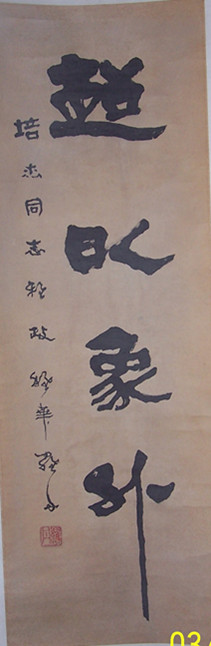 超以象外
培杰同志雅政
03